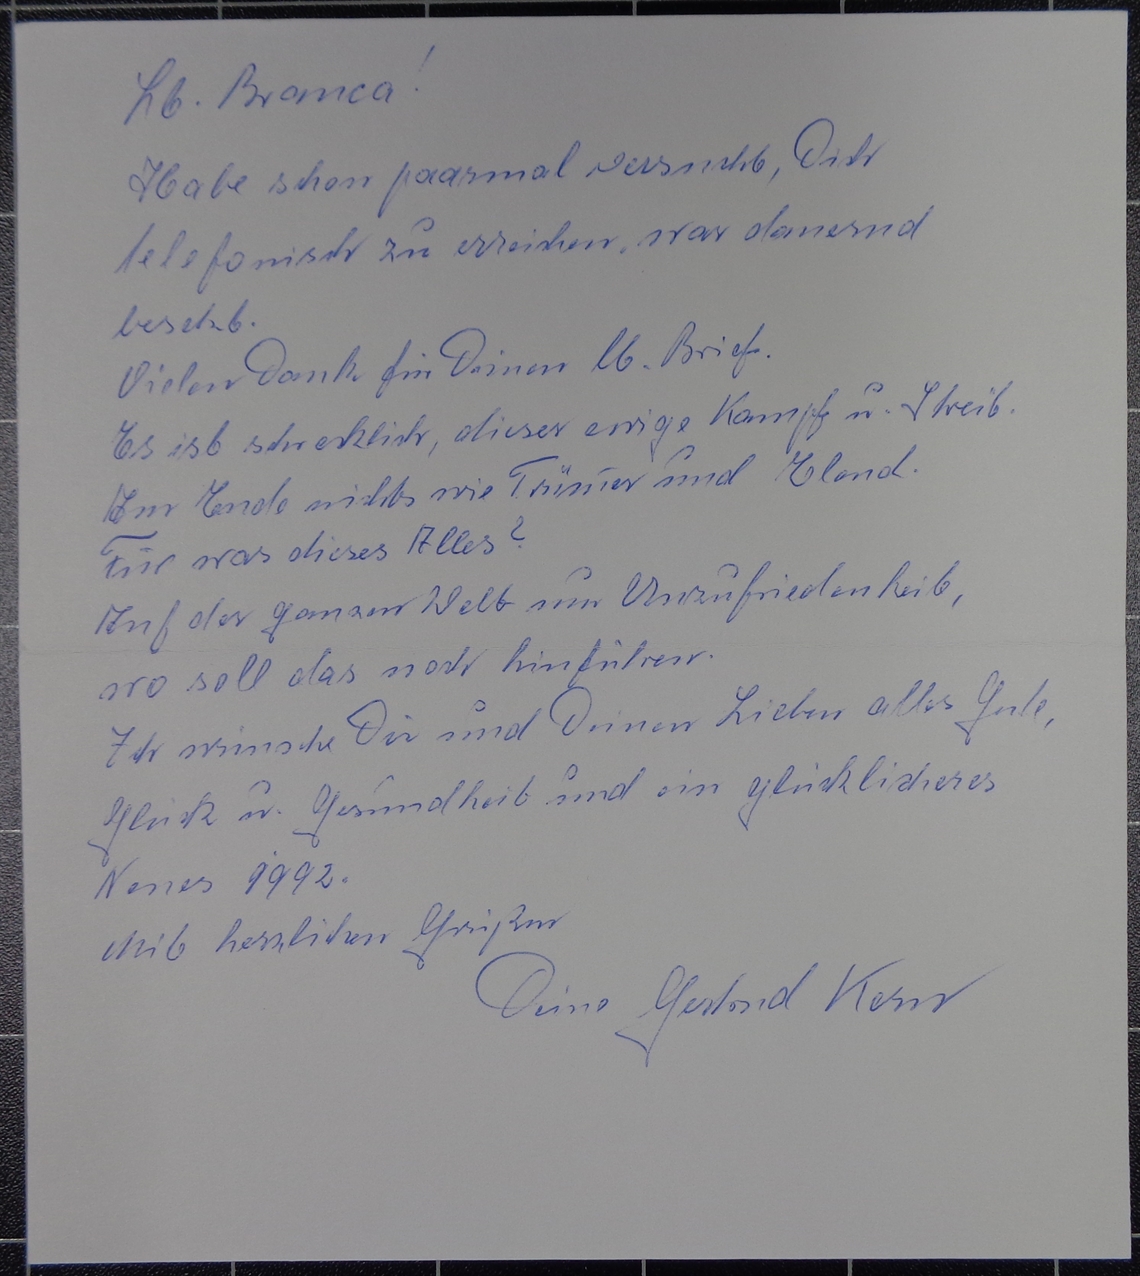 Lb. Branca!
Habe schon paarmal versucht, Dich
telefonisch zu erreichen, war dauernd
besetzt.
Vielen Dank für Deinen lb. Brief.
Es ist schrecklich, dieser ewige Kampf u. Streit.
Am Ende nichts wie Trümmer und Elend.
Für was dieses Alles?
Auf der ganzen Welt nur Unzufriedenheit,
wo soll das noch hinführen.
Ich wünsche Dir und Deinen Lieben alles Gute,
Glück u. Gesundheit und ein glücklicheres
Neues 1992.
Mit herzlichen Grüßen
Deine Kern